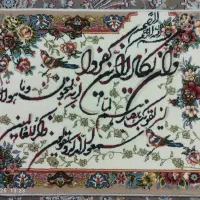 بسم الله الرحمن الرحیم
وان یکاد الذین کفروا
لیزلقونک بابصارهم لما
سمعوا الذکر و یقولون
انه لمجنون
وما هو الا
ذکر للعالمین